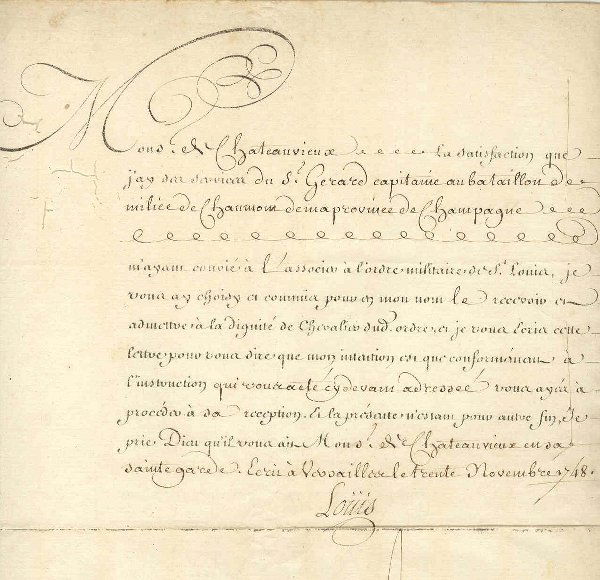 Mons.r de Chateauvieux la satisfaction que
j'ay des services du S.r Gerard capitaine au bataillon de
milice de Chaumont de ma province de Champagne
m'ayant convié à l'associer à l'ordre militaire de S.t Louis, je
vous ay choisy et commis pour en mon nom le recevoir et
admettre à la dignité de Chevalier dud. ordre, et je vous écris cette
lettre pour vous dire que mon intention est que conformément à
l'instruction qui vous a été cy devant adressée vous ayés à
procéder à sa reception. Et la présente n'estant pour autre fin, Je
prie Dieu qu'il vous ait Mons.r de Chateauvieux en sa
sainte garde. Ecrit à Versailles le trente Novembre 1748.
Loüis